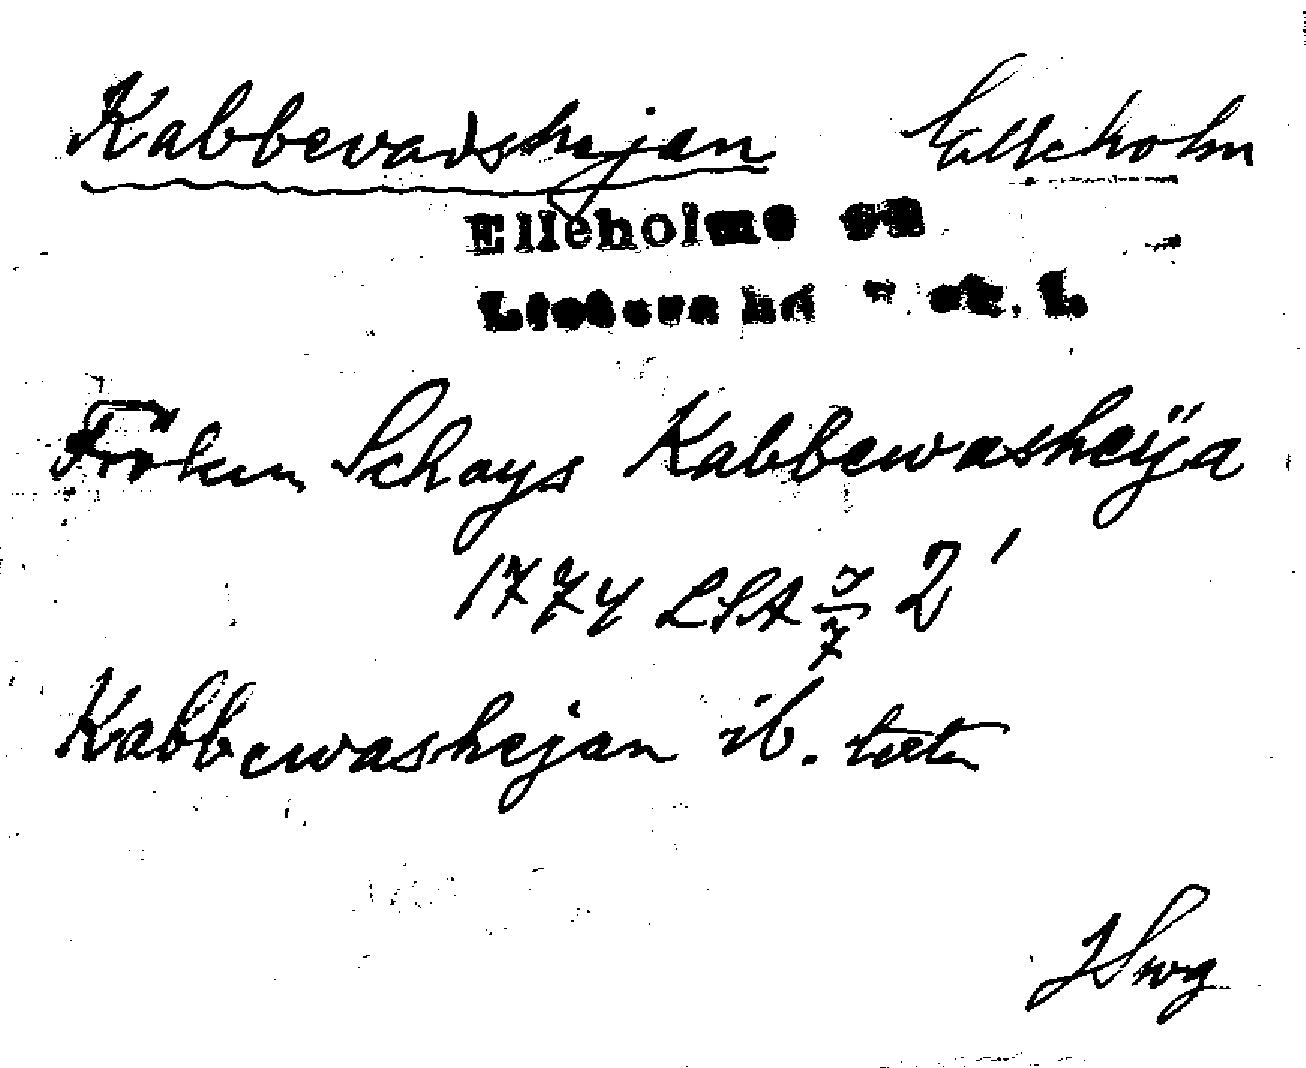 Kabbevadshejan Elleholm
Elleholms sn
Listers hd K. l.
Fröken Schays Kabbewasheÿa
1774 LSA 7/7 2'
Kabbewashejan ib.
JSwg